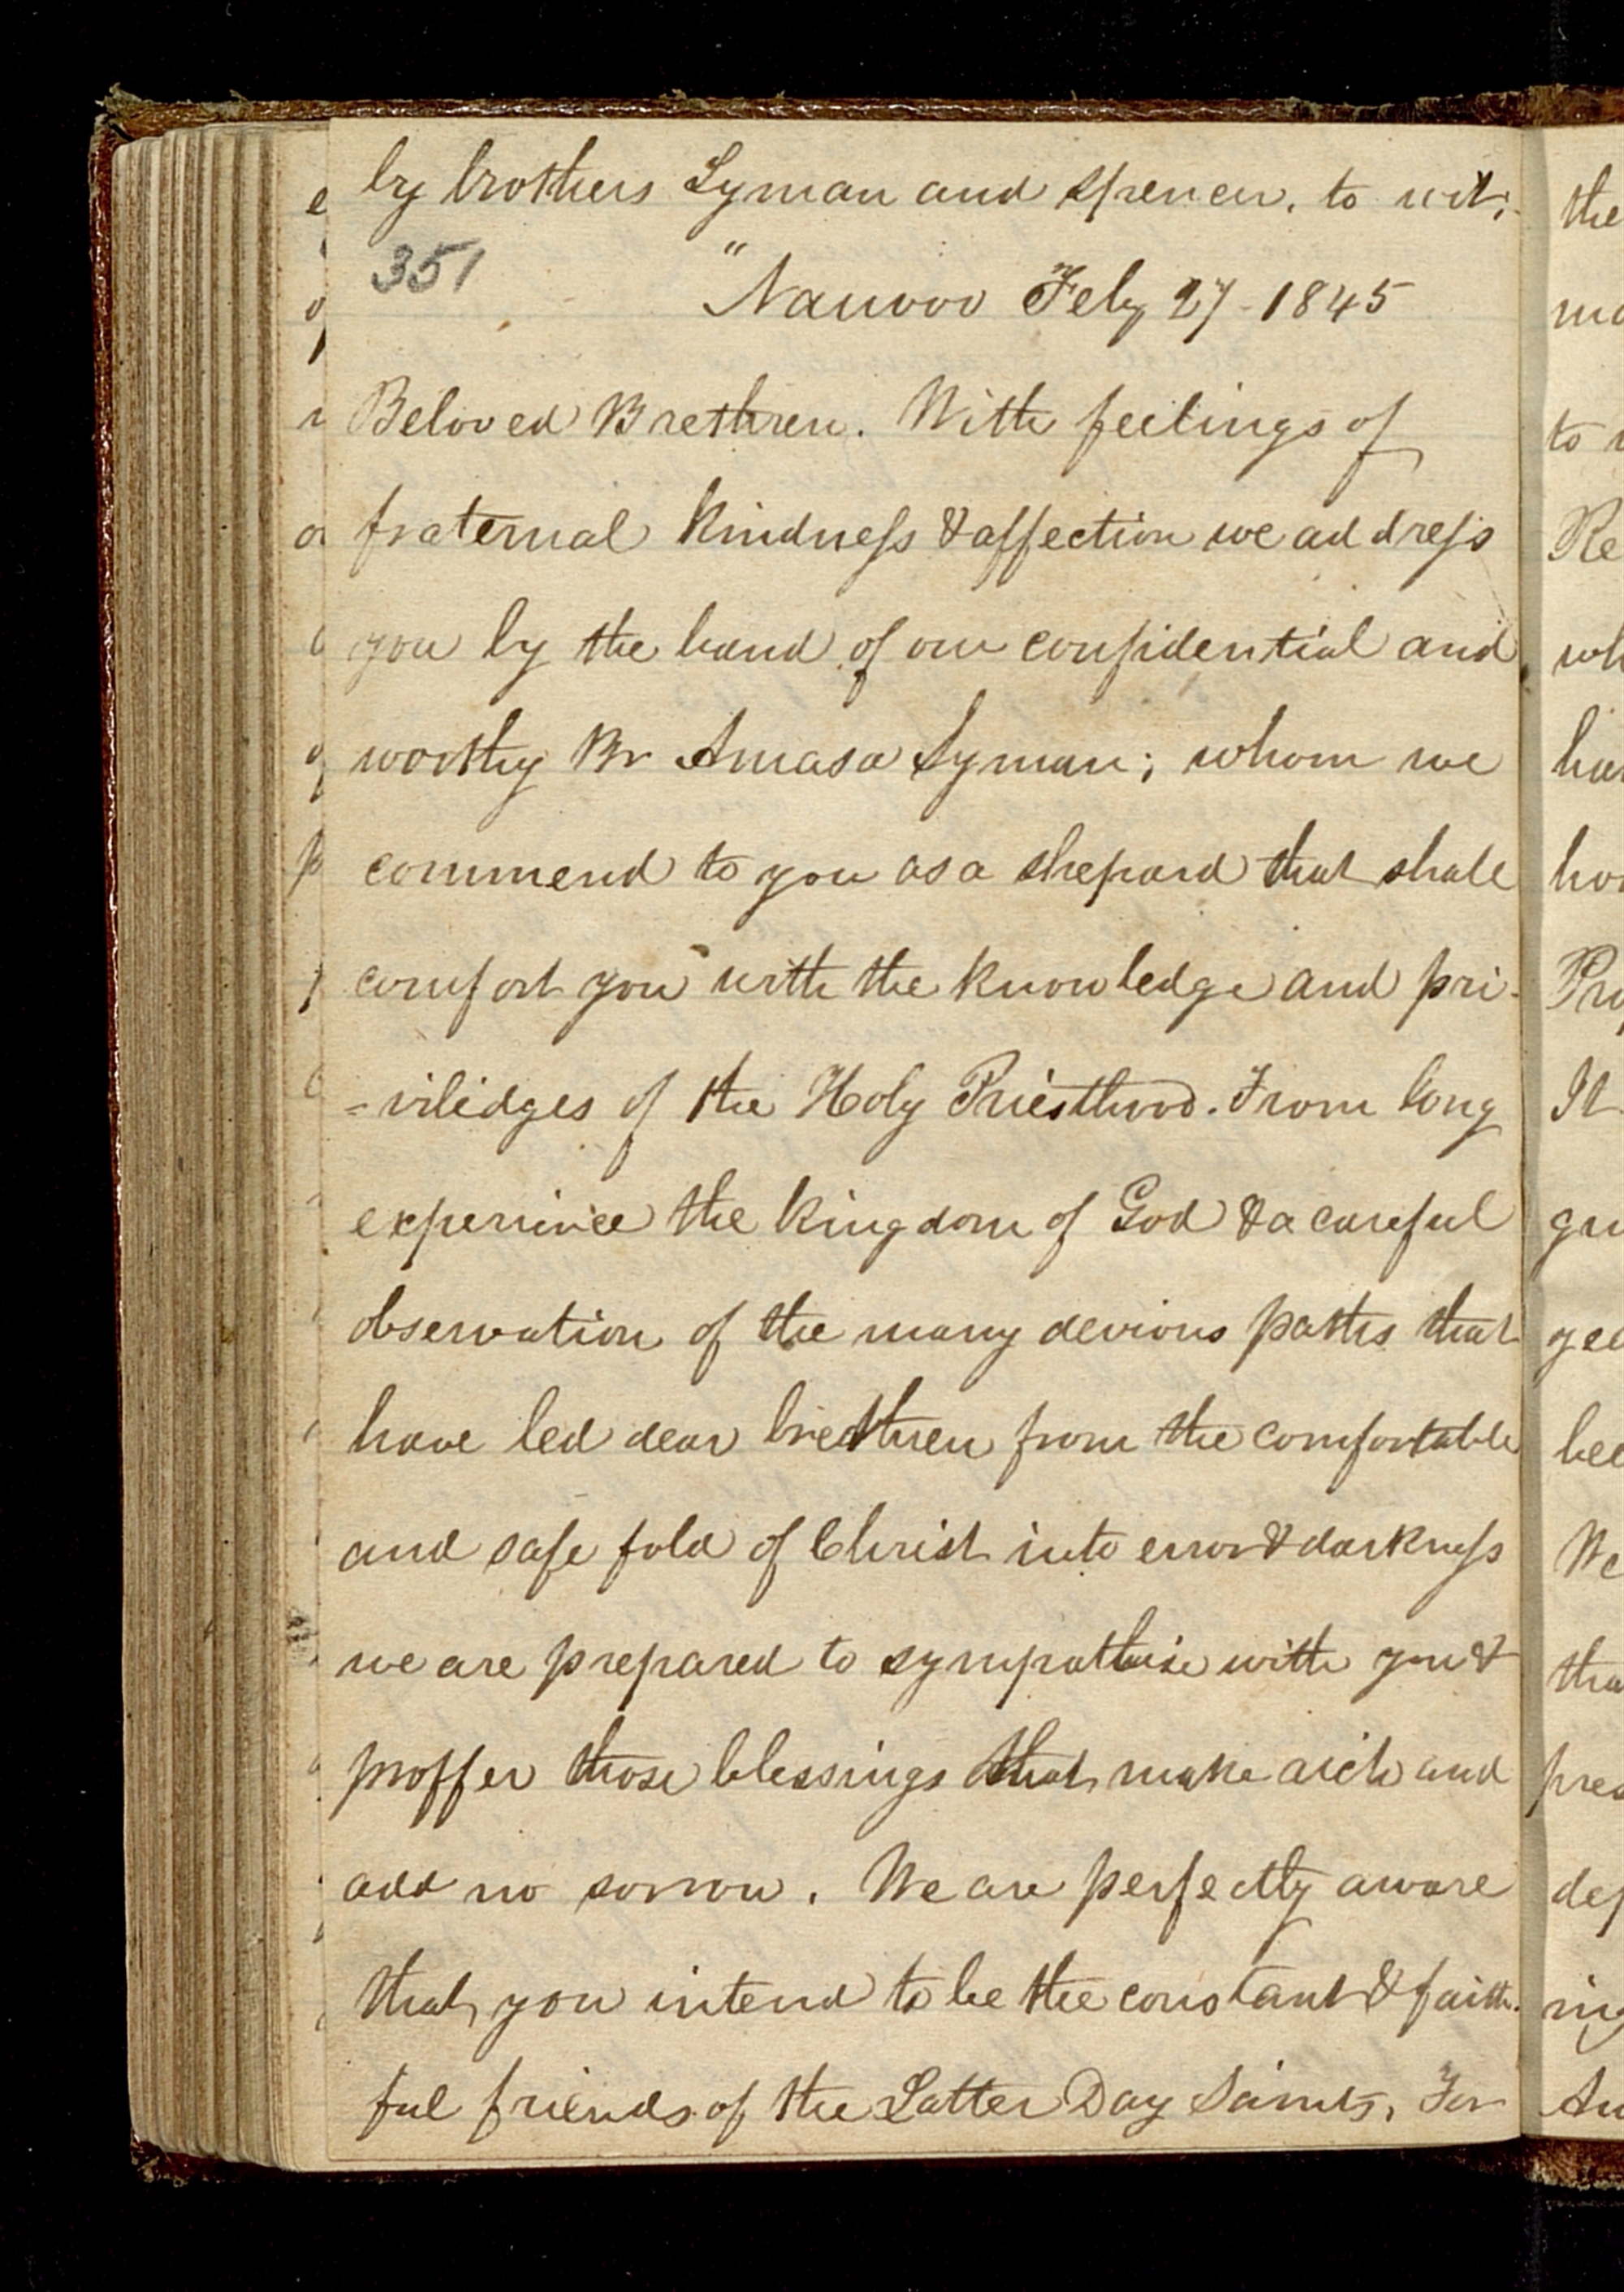 by brothers Lyman and Spencer, to wit;
351 "Nauvoo Feby 27 - 1845
Beloved Brethren. With feelings of
fraternal kindness & affection we address
you by the hand of our confidential and
worthy Br Amasa Lyman; whom we
commend to you as a shepard that shall
comfort you with the knowledge and pri-
=vilidges of the Holy Priesthood. From long
experince the kingdom of God & a careful
observation of the many devious paths that
have led dear brethren from the comfortable
and safe fold of Christ into error & darkness
we are prepared to sympathise with you &
proffer those blessings that make rich and
add no sorrow. We are perfectly aware
that you intend to be the constant & faith-
ful friends of the Latter Day Saints, For